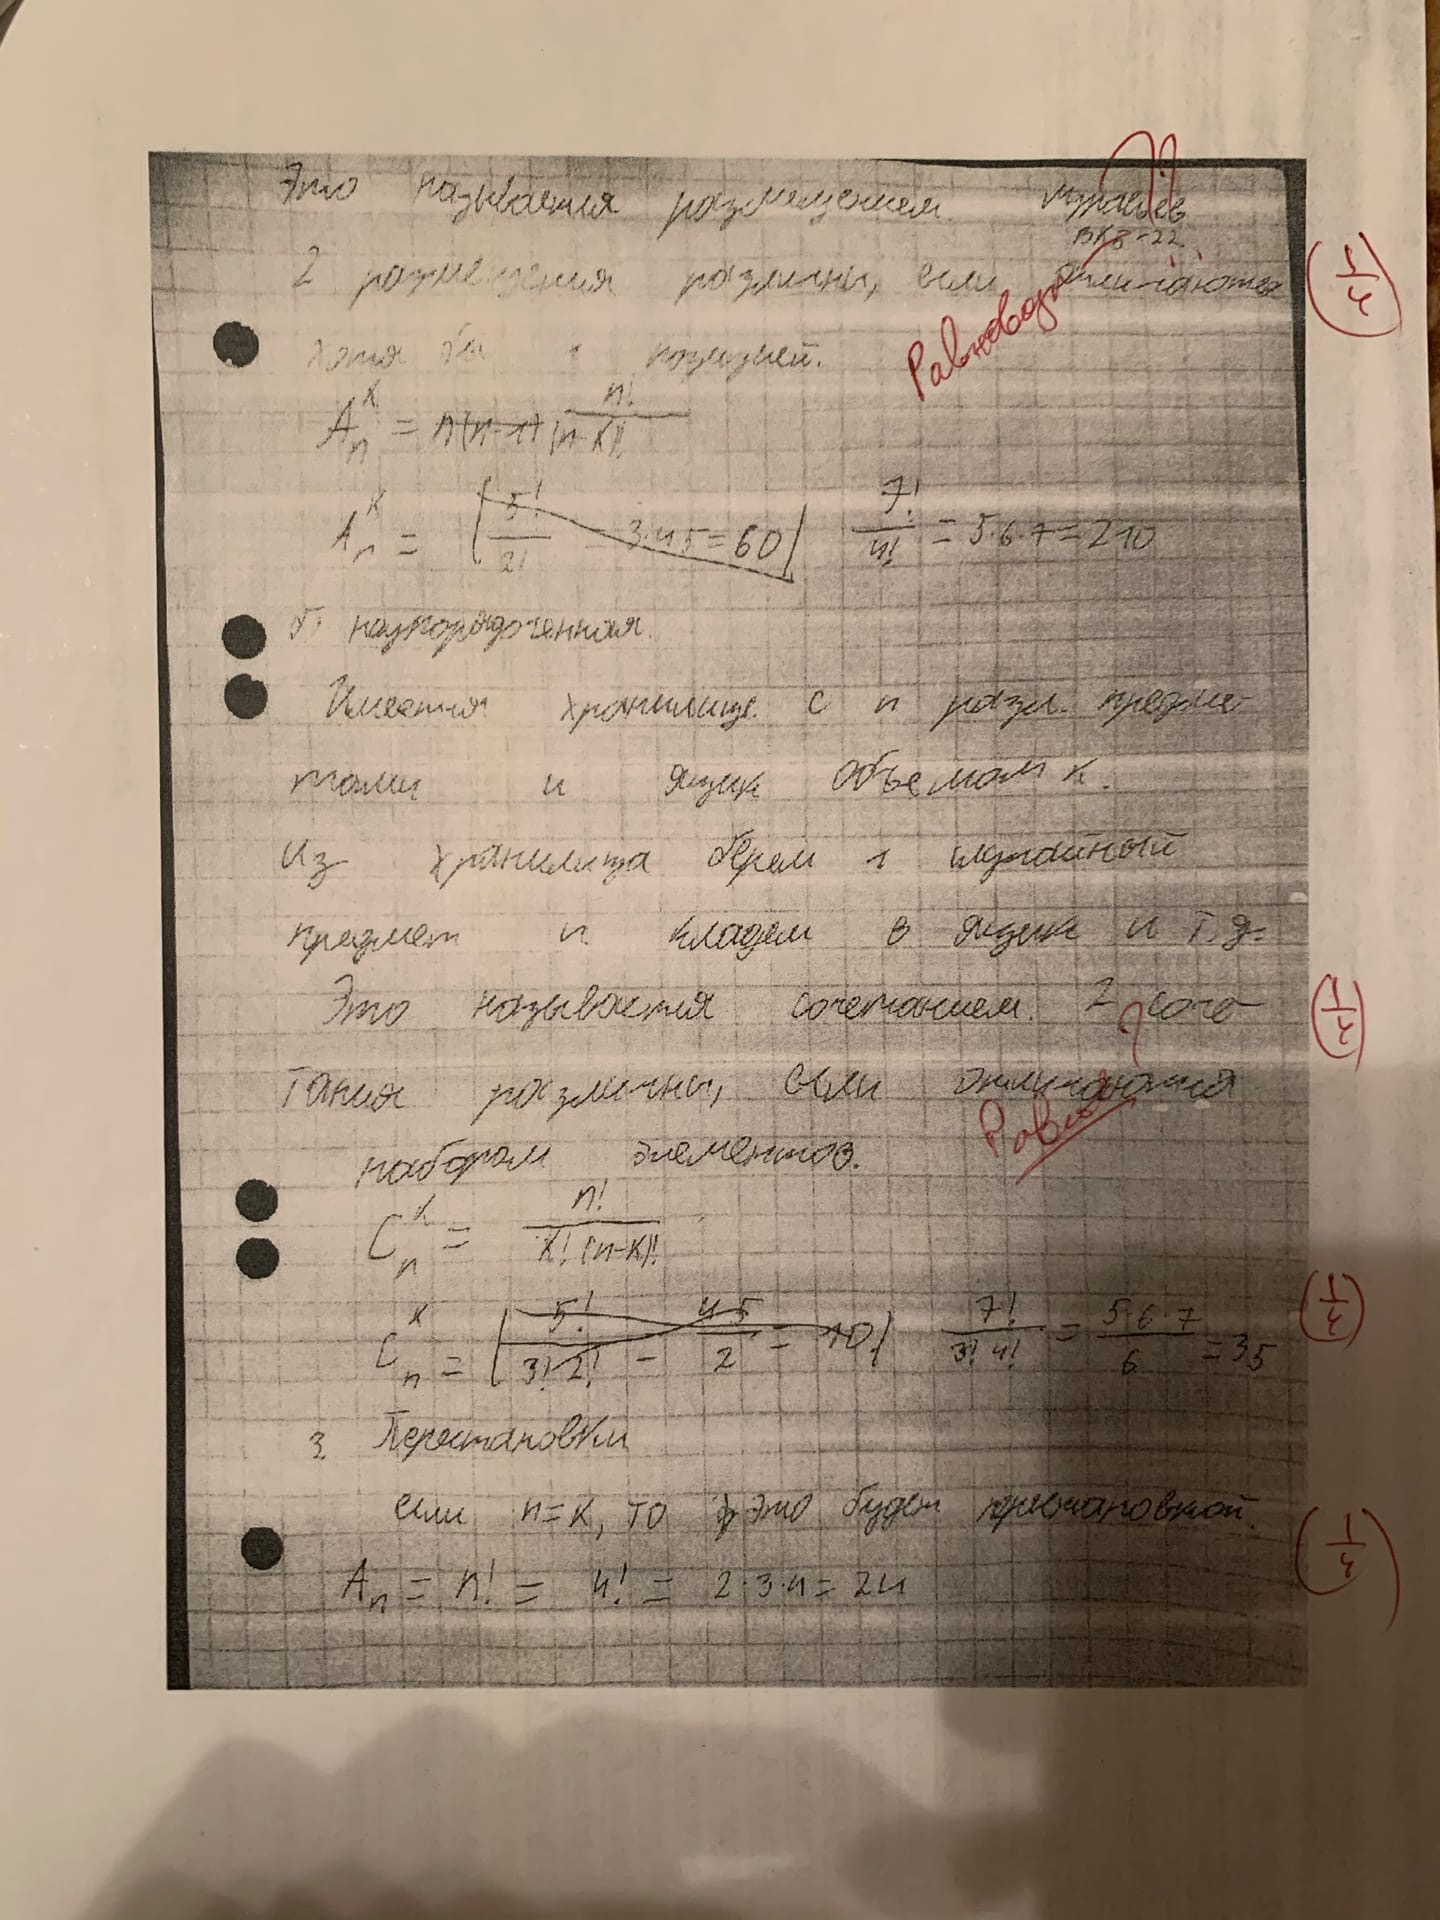 Это называется размещением. Муравьев
ВКБ-22
2 размещения различны, если отличаются
хотя бы 1 позицией.
A_n^k = n(n-1) n!/(n-k)!
A_n^k = [5!/2! = 3·4·5=60] 7!/4! = 5·6·7=210
б) неупорядоченная.
Имеется хранилище с n разл. предме-
тами и ящик объемом k.
Из хранилища берем 1 случайный
предмет и кладем в ящик и т.д.
Это называется сочетанием. 2 соче-
тания различны, если отличаются
набором элементов.
C_n^k = n!/k!(n-k)!
C_n^k = [5!/3!·2! = 4·5/2 = 10] 7!/3!·4! = 5·6·7/6 = 35
3. Перестановки
если n=k, то это будет перестановкой.
A_n = n! = 4! = 2·3·4=24
1/4
1/4
1/4
1/4